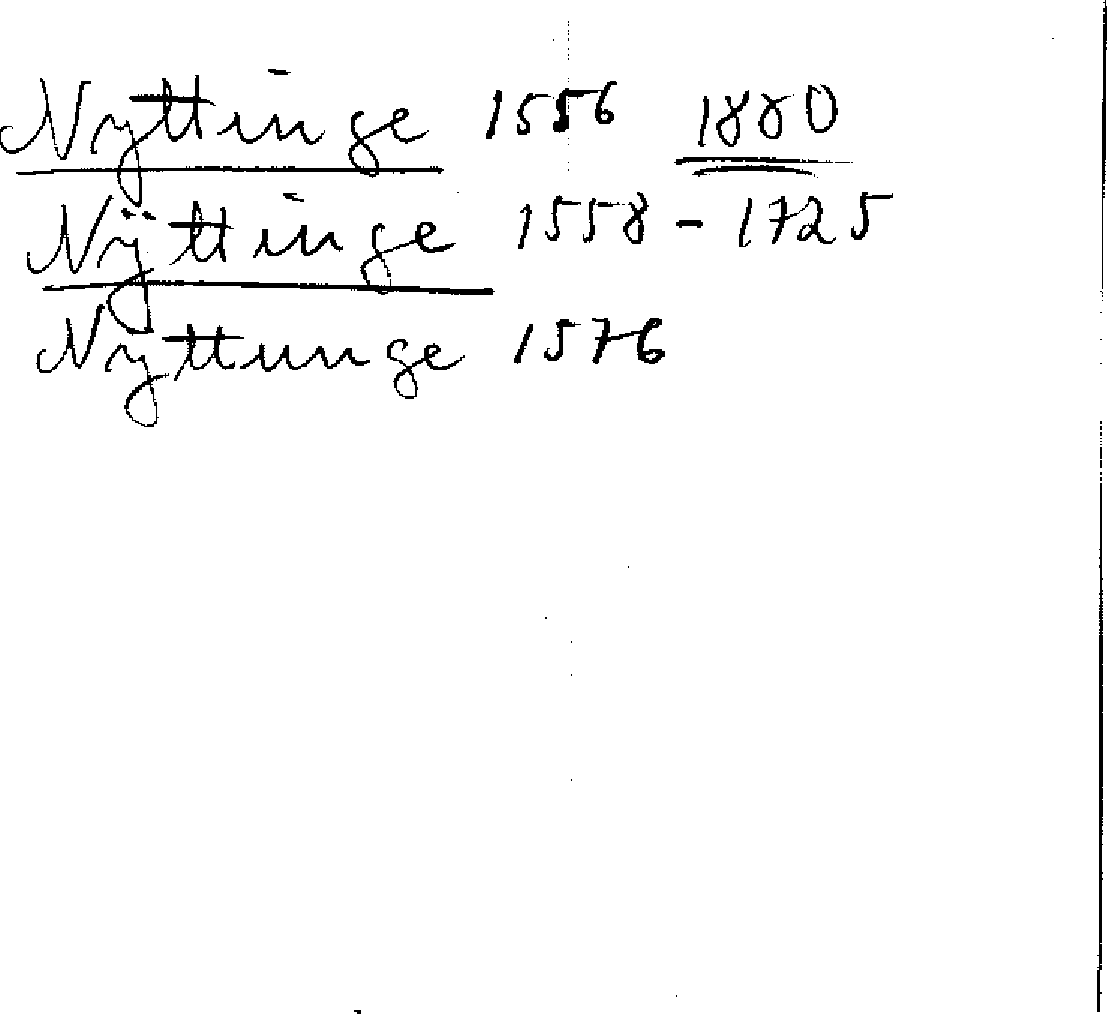 Nyttinge 1556 1880
Nÿttinge 1558 - 1725
Nyttunge 1576